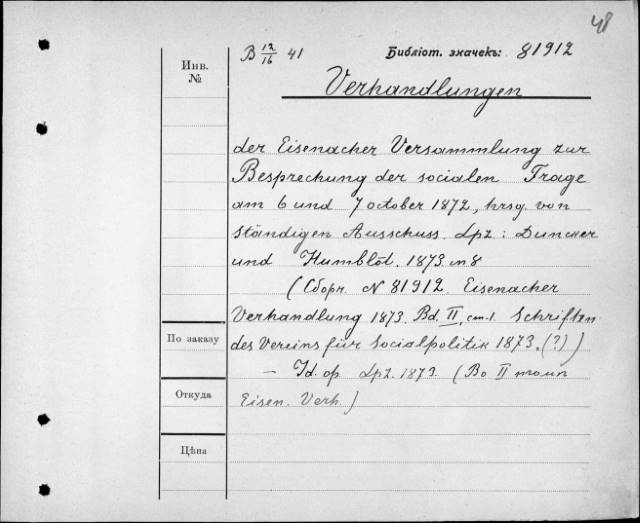 48
B 12/16 41 Библіот. значекъ: 81912
Инв. №
Verhandlungen
der Eisenacher Versammlung zur
Besprechung der socialen Frage
am 6 und 7 october 1872, hrsg. von
ständigen Ausschuss. Lpz: Duncker
und Humblot. 1873. in 8
(Сборн. N 81912. Eisenacher
Verhandlung 1873. Bd. II, ст. 1. Schriften
По заказу des Vereins für Socialpolitik 1873. (?))
– Id. op. Lpz. 1873. (Во II томѣ
Откуда Eisen. Verh.)
Цѣна